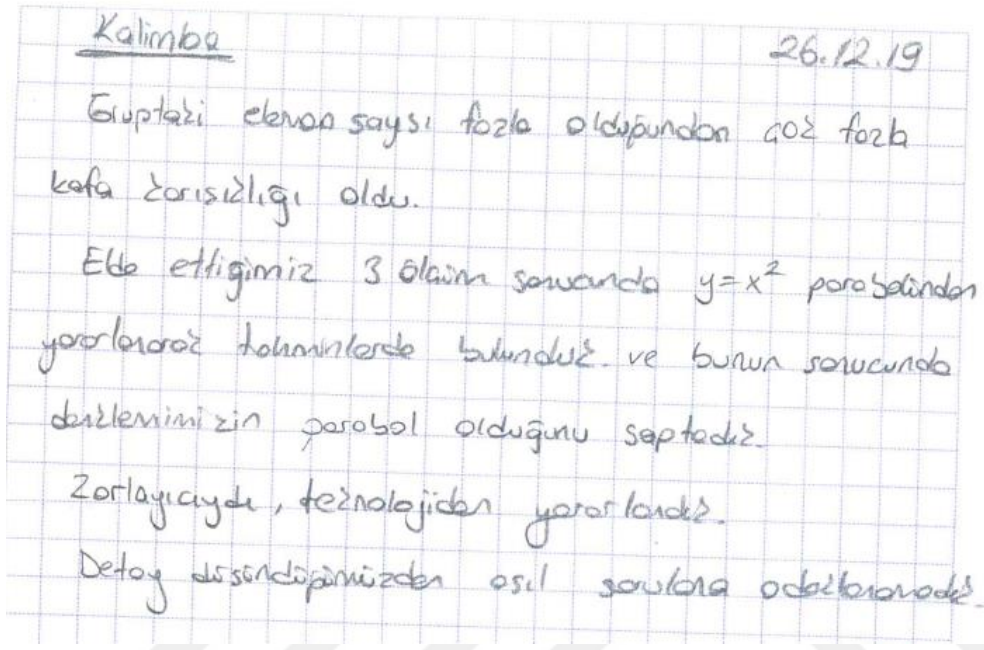 Kalimba 26.12.19
Gruptaki eleman sayısı fazla olduğundan çok fazla
kafa karışıklığı oldu.
Elde ettiğimiz 3 ölçüm sonucunda y=x² parabolünden
yararlanarak tahminlerde bulunduk. ve bunun sonucunda
denklemimizin parabol olduğunu saptadık.
Zorlayıcıydı, teknolojiden yararlandık.
Detay düşündüğümüzden asıl sorulara odaklanamadık.